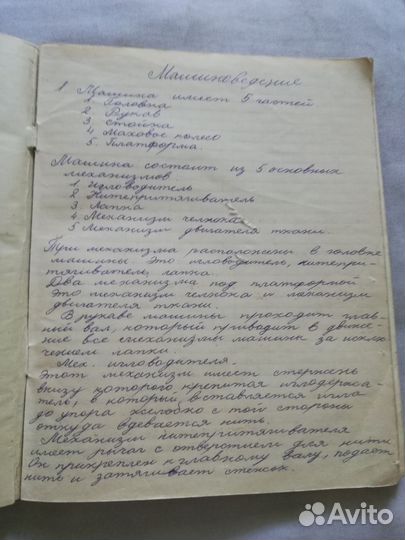 Машиноведение
1 Машина имеет 5 частей
1 Головка
2 Рукав
3 Стойка
4 Маховое колесо
5. Платформа.
Машина состоит из 5 основных
механизмов
1 Игловодитель
2 Нитепритягиватель
3 Лапка
4. Механизм челнока
5 Механизм двигателя ткани.
Три механизма расположены в головке
машины. Это игловодитель, нитепри-
тягиватель, лапка.
Два механизма под платформой
это механизм челнока и механизм
двигателя ткани.
В рукаве машины проходит глав-
ний вал, который приводит в движе-
ние все механизмы машин за исклю-
чением лапки
Мех. игловодителя.
Этот механизм имеет стержень
внизу которого крепится иглодержа-
тель, в который вставляется игла
до упора желобко с той стороны
откуда вдевается нить.
Механизм нитепритягивателя
имеет рычаг с отверстием для нити
Он прикреплен к главному валу, подает
нить и затягивает стежок.
Avito